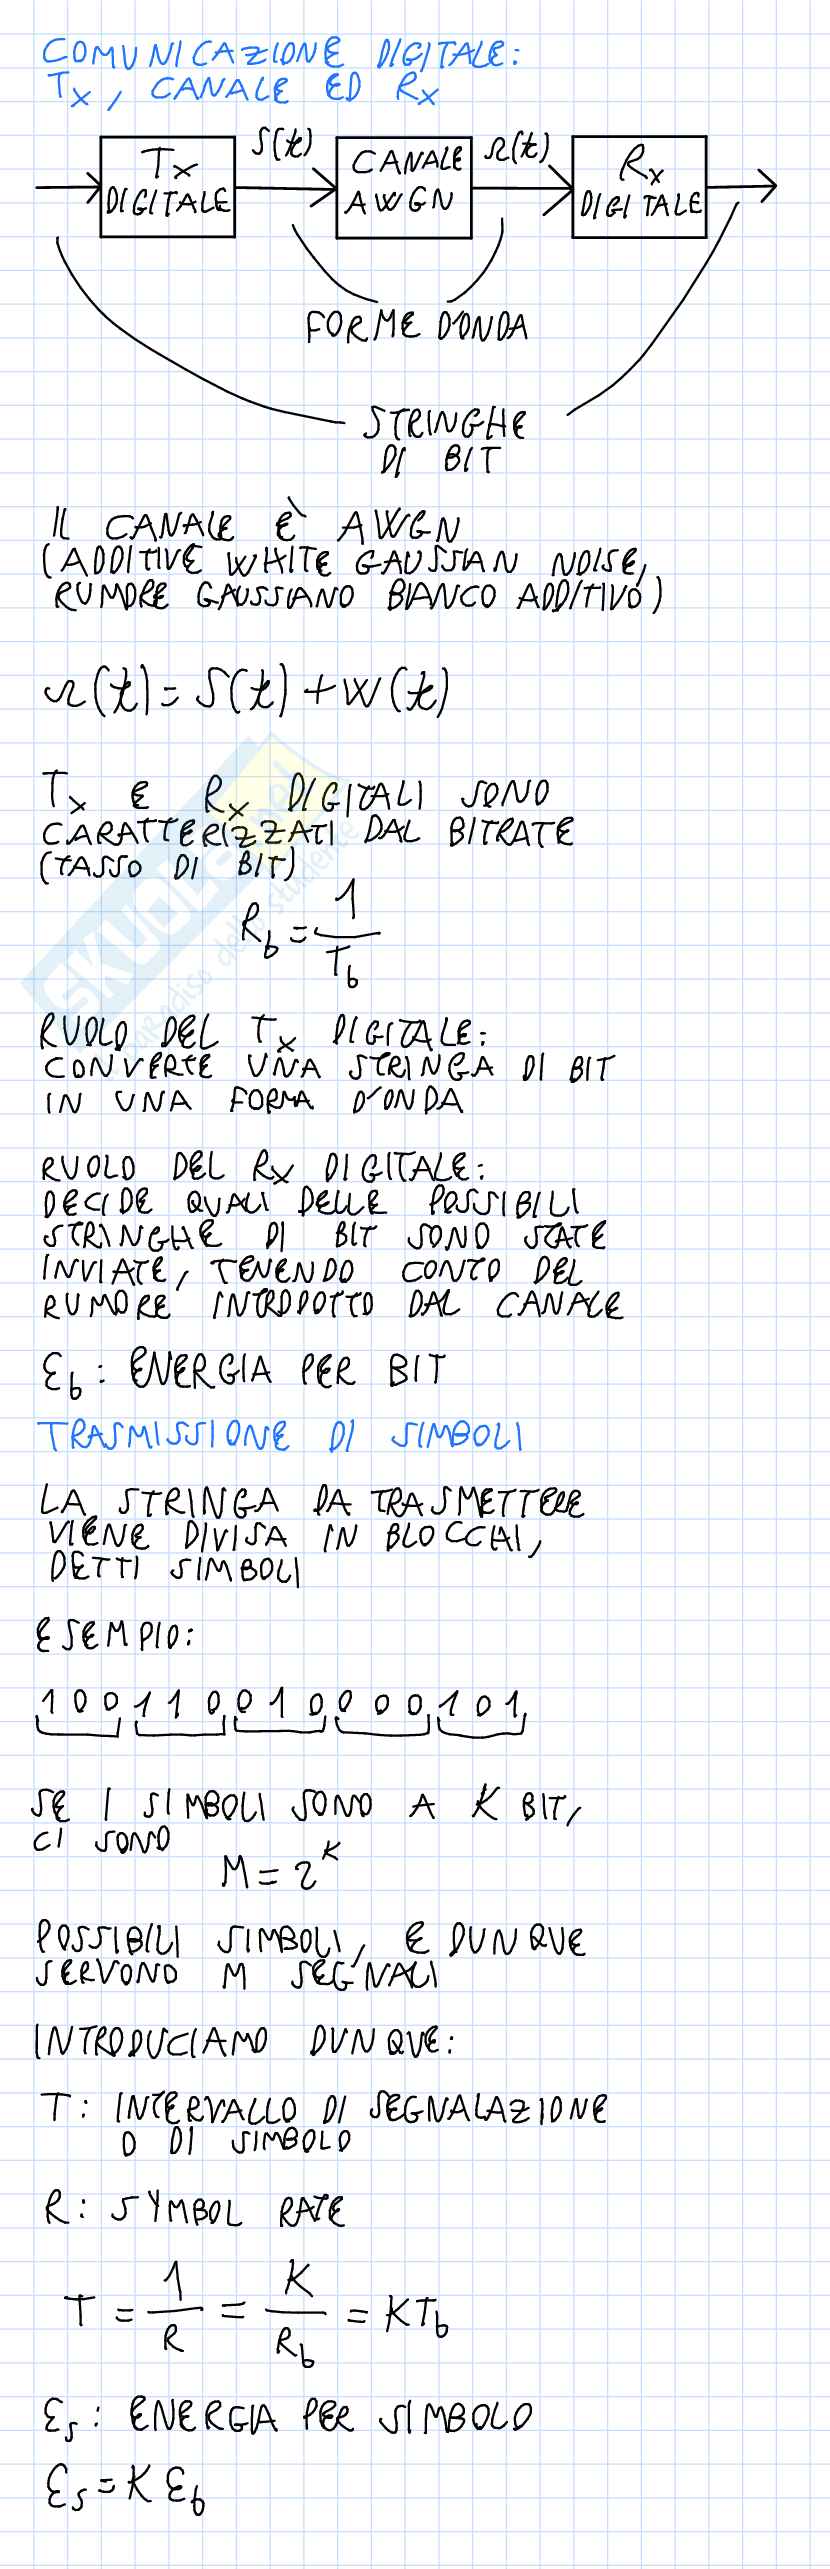 COMUNICAZIONE DIGITALE:
Tx, CANALE ED Rx
Tx DIGITALE
s(t)
CANALE AWGN
r(t)
Rx DIGITALE
FORME D'ONDA
STRINGHE
DI BIT
IL CANALE È AWGN
(ADDITIVE WHITE GAUSSIAN NOISE,
RUMORE GAUSSIANO BIANCO ADDITIVO)
r(t) = s(t) + w(t)
Tx E Rx DIGITALI SONO
CARATTERIZZATI DAL BITRATE
(TASSO DI BIT)
R_b = 1/T_b
SKUOLA.net
paradiso dello studente
RUOLO DEL Tx DIGITALE:
CONVERTE UNA STRINGA DI BIT
IN UNA FORMA D'ONDA
RUOLO DEL Rx DIGITALE:
DECIDE QUALI DELLE POSSIBILI
STRINGHE DI BIT SONO STATE
INVIATE, TENENDO CONTO DEL
RUMORE INTRODOTTO DAL CANALE
ε_b: ENERGIA PER BIT
TRASMISSIONE DI SIMBOLI
LA STRINGA DA TRASMETTERE
VIENE DIVISA IN BLOCCHI,
DETTI SIMBOLI
ESEMPIO:
1 0 0 1 1 0 0 1 0 0 0 0 1 0 1
SE I SIMBOLI SONO A K BIT,
CI SONO
M = 2^K
POSSIBILI SIMBOLI, E DUNQUE
SERVONO M SEGNALI
INTRODUCIAMO DUNQUE:
T: INTERVALLO DI SEGNALAZIONE
O DI SIMBOLO
R: SYMBOL RATE
T = 1/R = K/R_b = KT_b
ε_s: ENERGIA PER SIMBOLO
ε_s = K ε_b